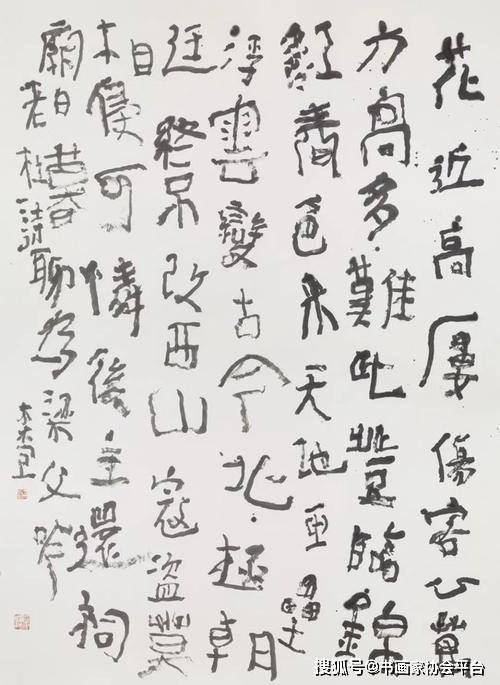 花近高樓傷客心萬
方高多難此登臨錦
江春色來天地玉壘
浮雲變古今北極朝
廷終不改西山寇盜莫
相侵可憐後主還祠
廟日暮聊為梁父吟
搜狐号@书画家协会平台